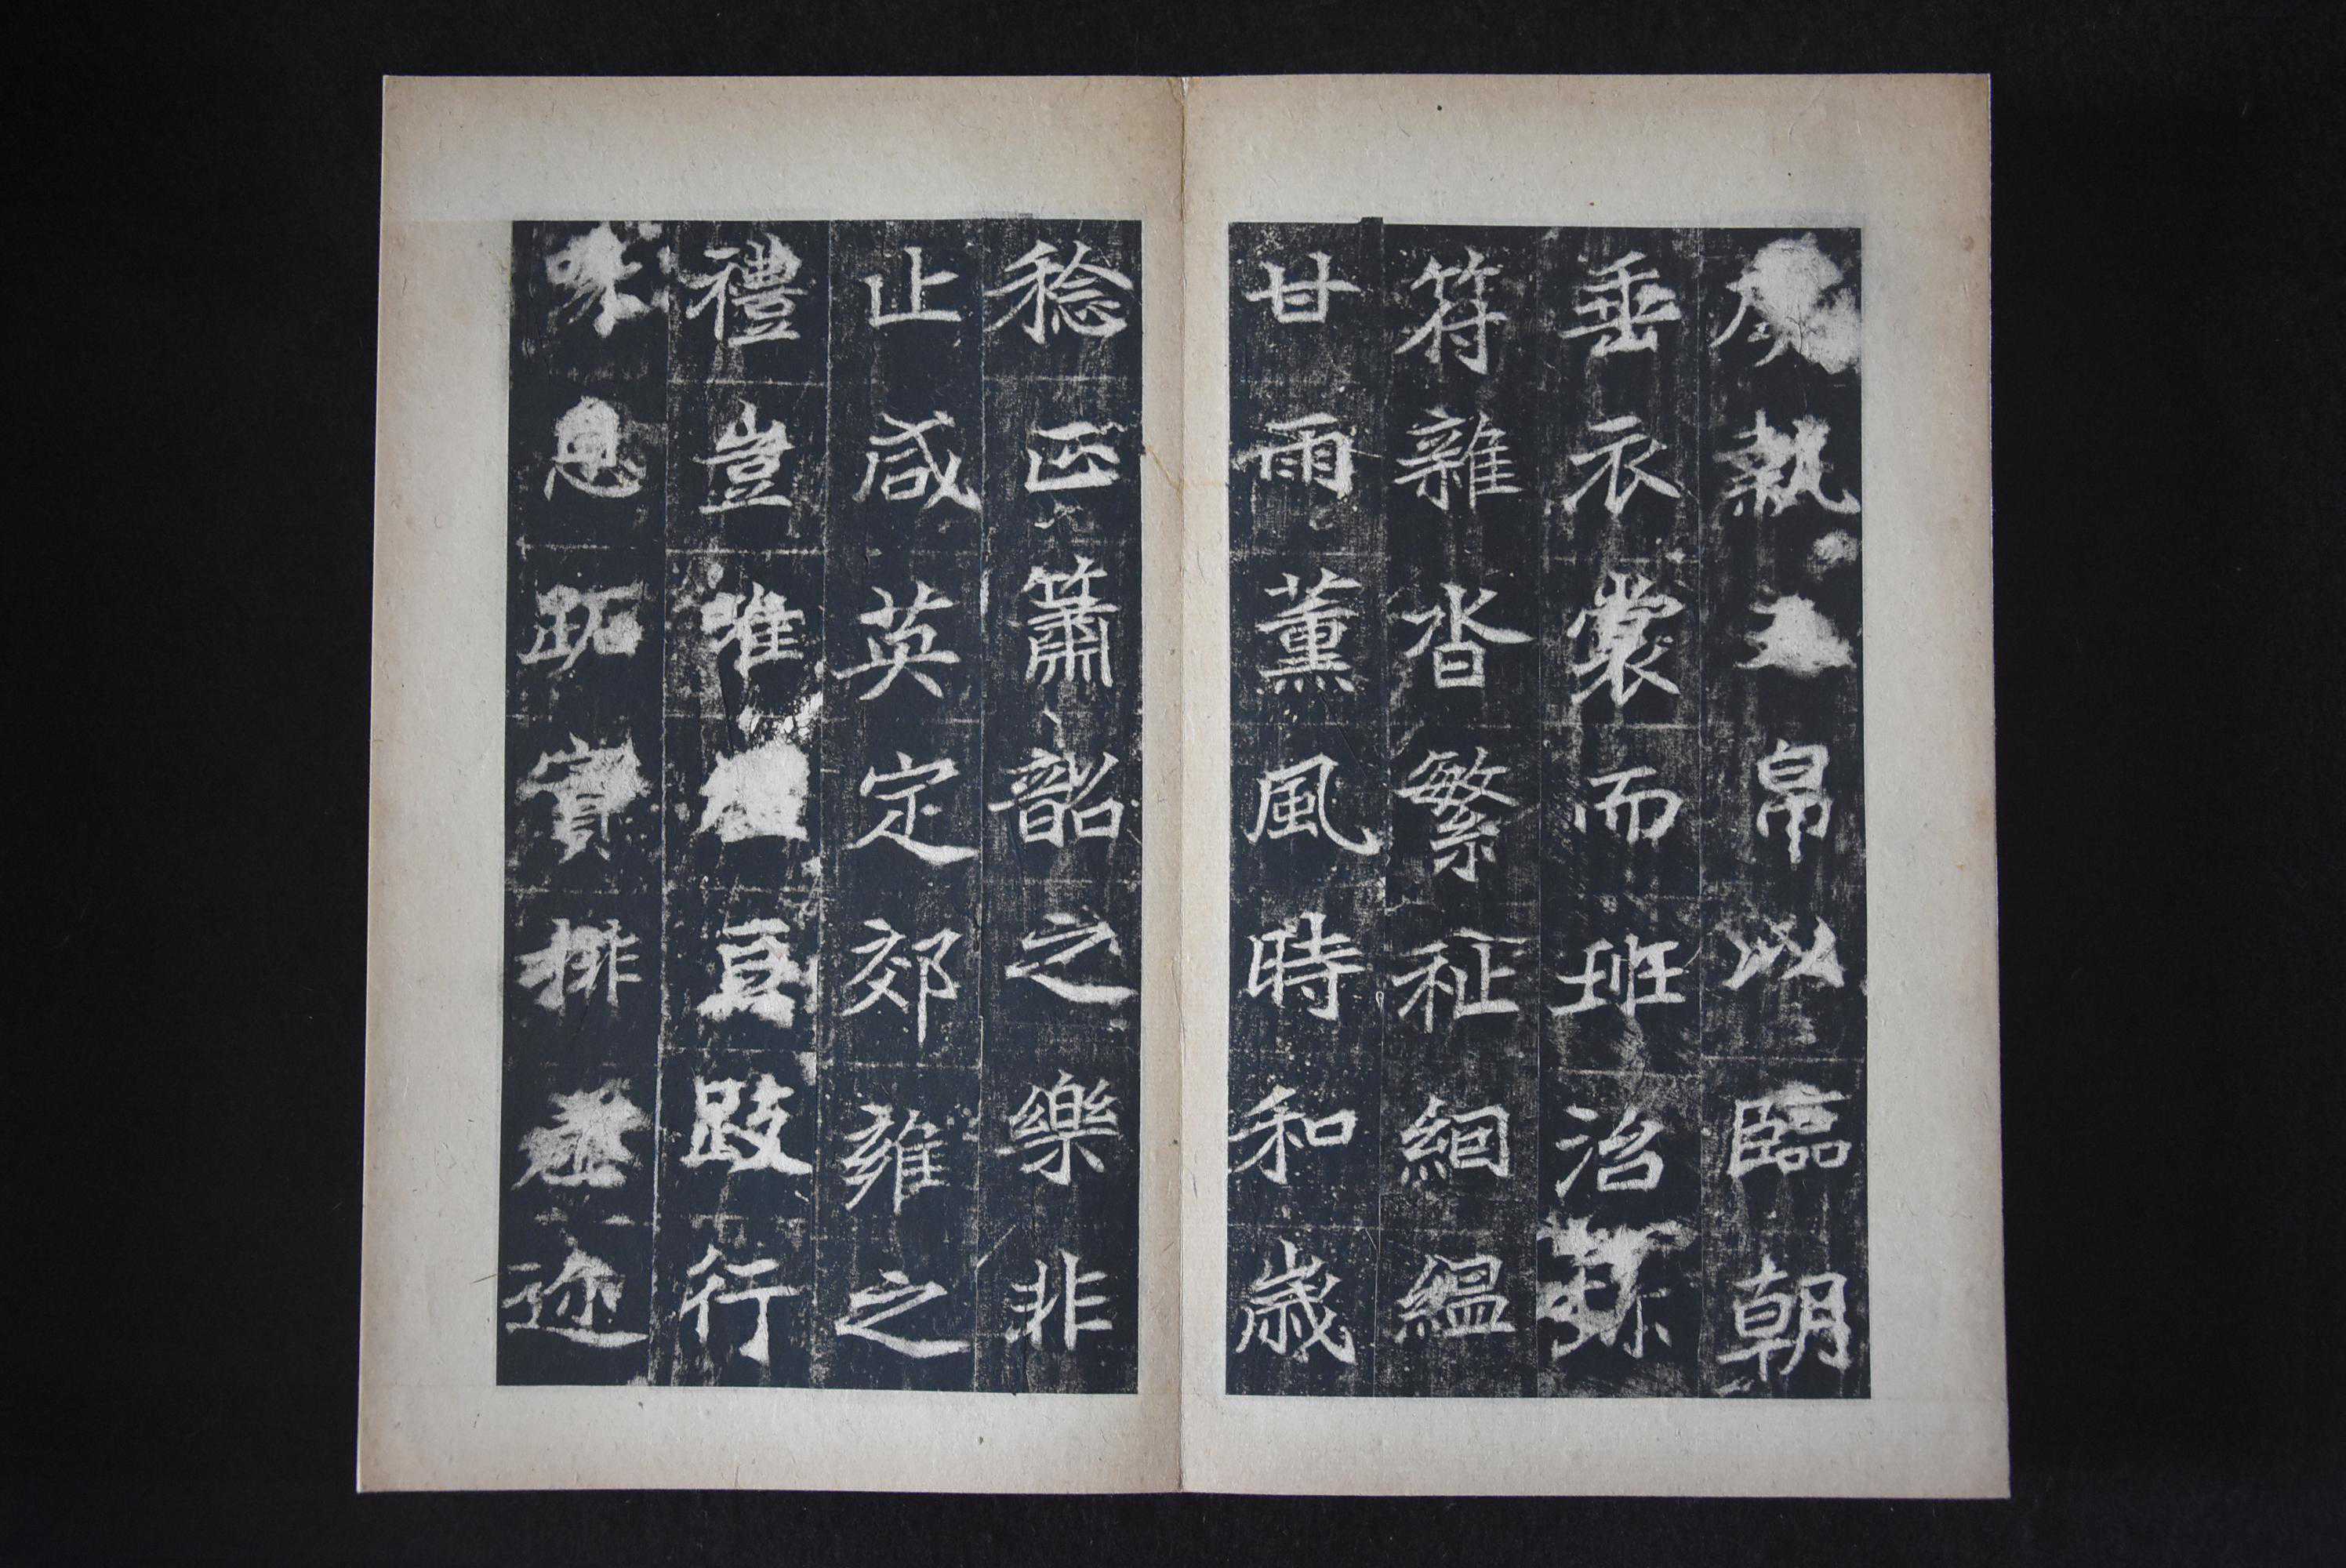 執玉帛以臨朝
垂衣裳而班治
符雜沓繁祉絪縕
甘雨薫風時和歳
稔正簫韶之樂非
止咸英定郊雍之
禮豈唯豆跂行
息 寶排迹